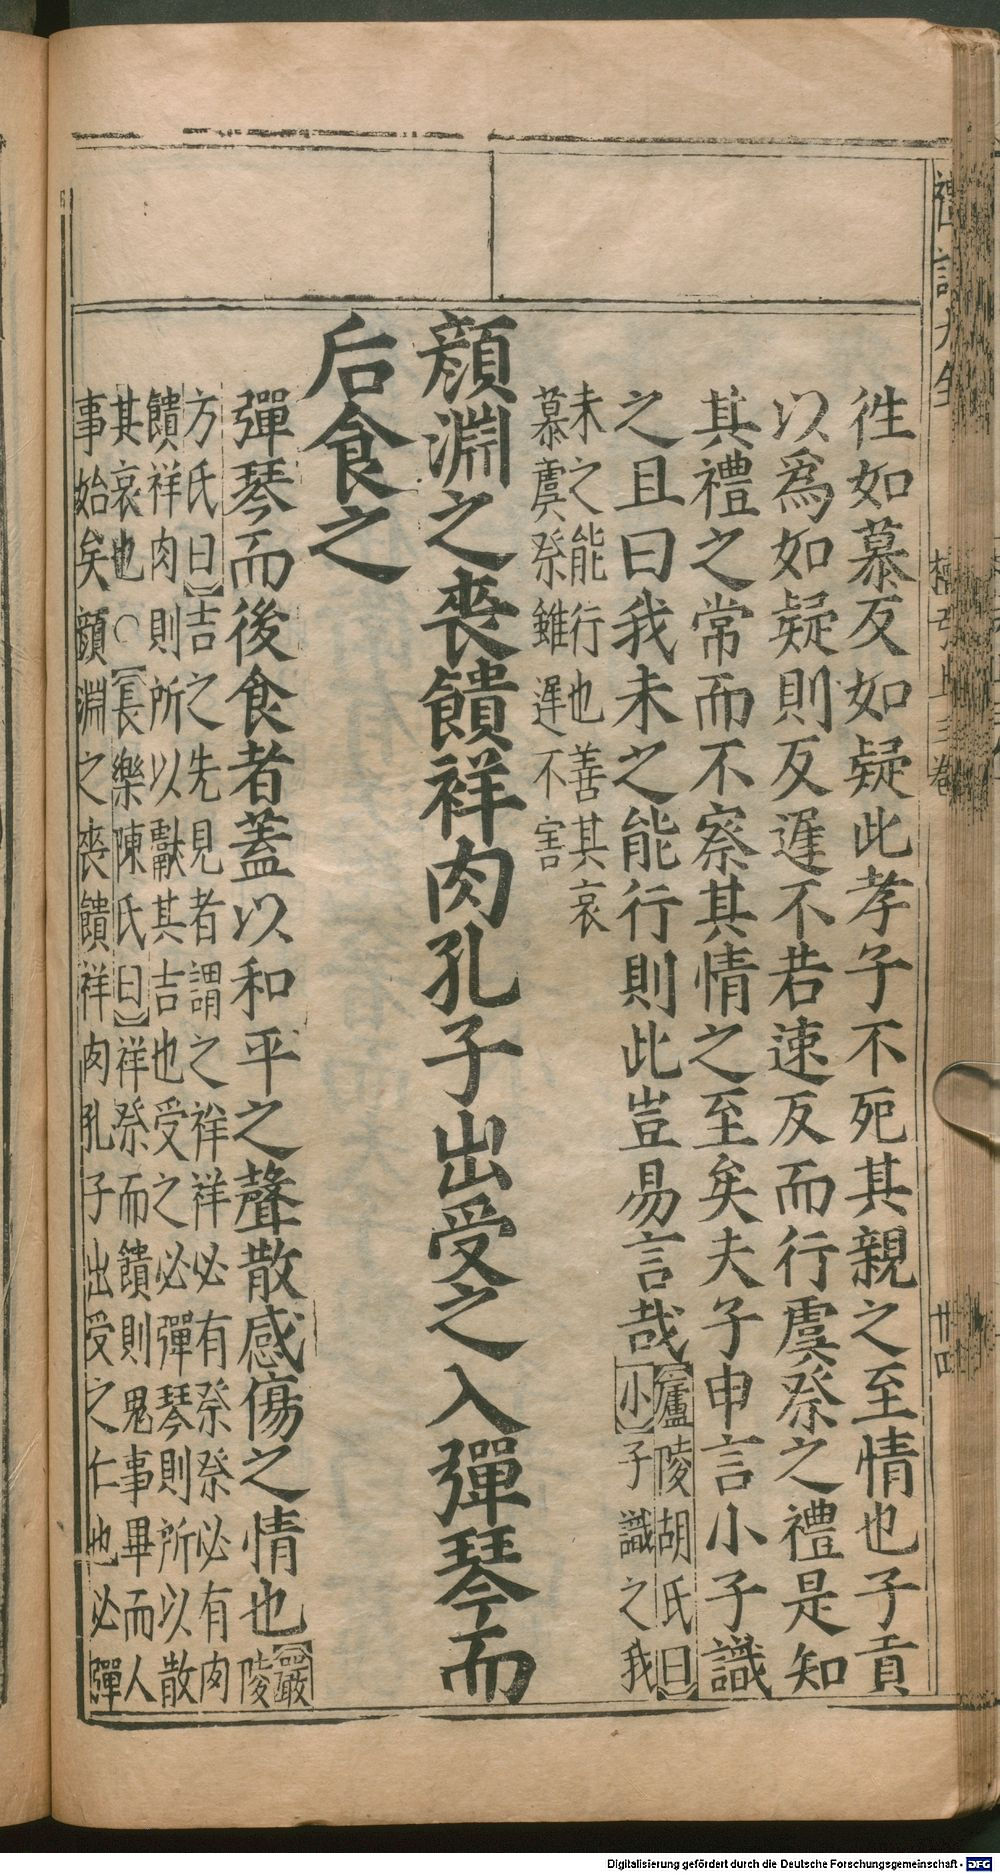 徃如慕反如疑此孝子不死其親之至情也子貢
以爲如疑則反遲不若速反而行虞祭之禮是知
其禮之常而不察其情之至矣夫子申言小子識
之且曰我未之能行則此豈易言哉【廬陵胡氏曰】
小子識之我
未之能行也善其哀
慕虞祭雖遲不害
顔淵之喪饋祥肉孔子出受之入彈琴而
后食之
彈琴而後食者蓋以和平之聲散感傷之情也【嚴
陵
方氏曰】吉之先見者謂之祥祥必有祭祭必有肉
饋祥肉則所以獻其吉也受之必彈琴則所以散
其哀也○【長樂陳氏曰】祥祭而饋則鬼事畢而人
事始矣顔淵之喪饋祥肉孔子出受之仁也必彈
卄四
Digitalisierung gefördert durch die Deutsche Forschungsgemeinschaft - DFG